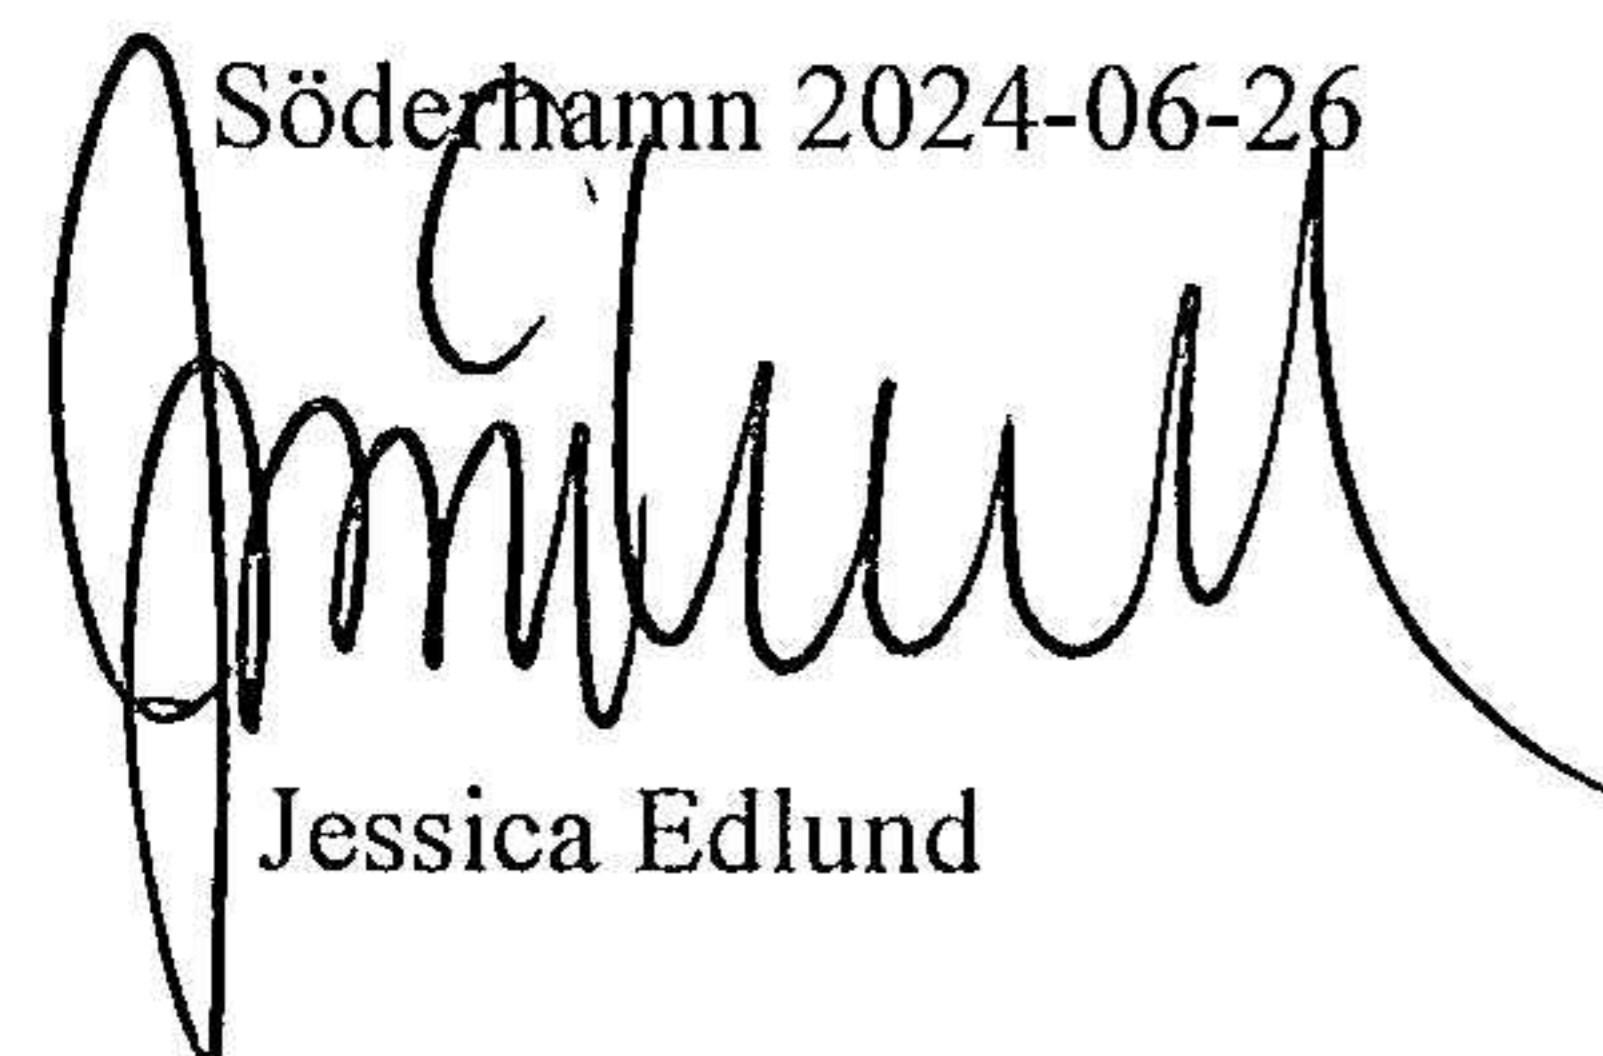 Söderhamn 2024-06-26
Jessica Edlund